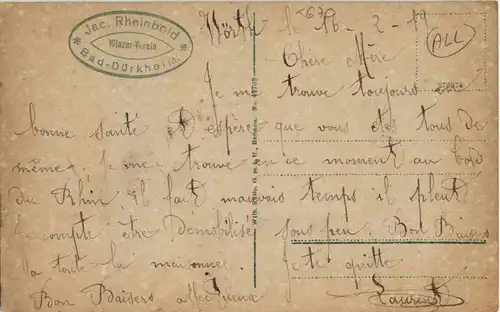 Jac. Rheinbold
Winzer-Verein
Bad-Dürkheim.
Wörth le 16-2-19
ALL
Chère Mère
Je me trouve toujours en
bonne santé et espère que vous etes tous de
même. Je me trouve en ce moment au bord
du Rhin, il fait mauvais temps il pleut
Je compte être démobilisé sous peu. Bon Baisers
a toute la maisonnée. Je te quitte
Bon Baisers affectueux
Laurent